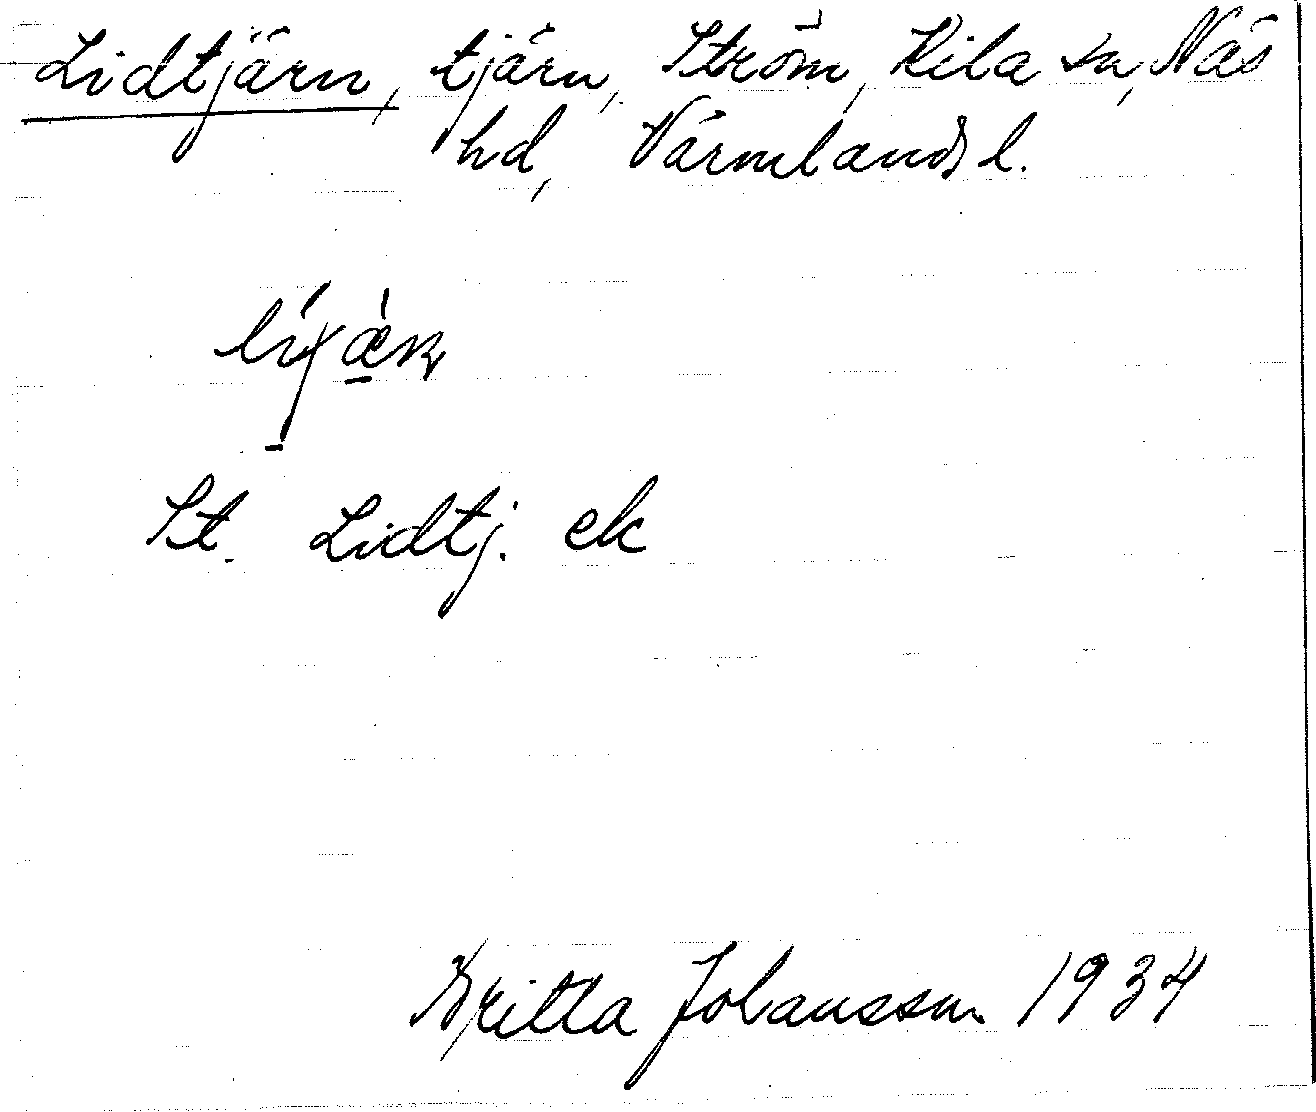 Lidtjärn, tjärn, Ström, Kila sn, Näs
hd, Värmlands l.
St. Lidtj. ek
Britta Johansson 1934